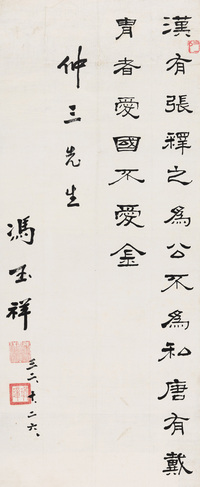 漢有張釋之為公不為私唐有戴
胄者愛國不愛金
仲三先生
馮玉祥
三二、十、二六、